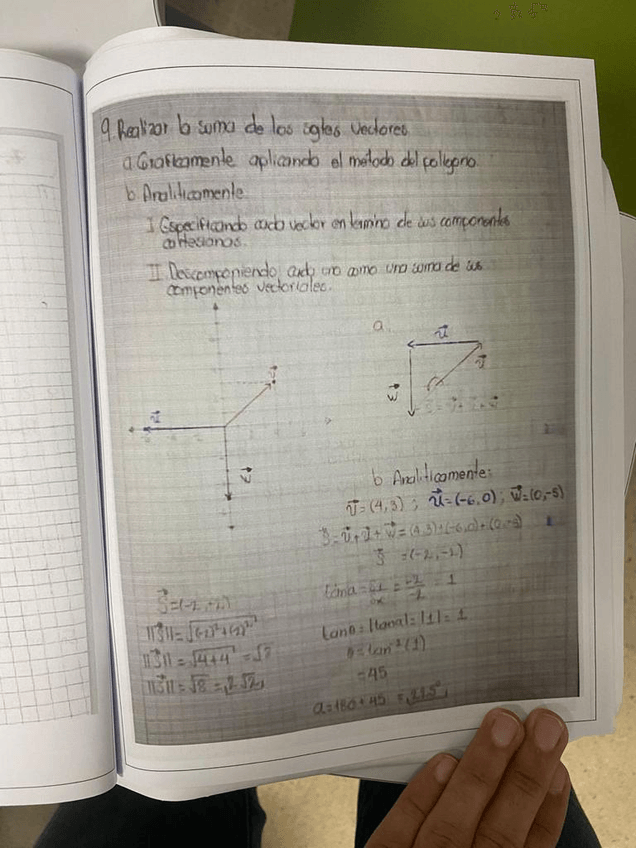 9. Realizar la suma de los sgtes vectores
a. Graficamente aplicando el método del poligono
b. Analiticamente
I Especificando cada vector en termino de sus componentes
cartesianas.
II Descomponiendo cada uno como una suma de sus
componentes vectoriales.
a.
u⃗
v⃗
w⃗
v⃗
u⃗
w⃗
b Analiticamente:
v⃗=(4,3) ; u⃗=(-6,0) ; w⃗=(0,-5)
S⃗=v⃗+u⃗+w⃗=(4,3)+(-6,0)+(0,-5)
S⃗ =(-2,-2)
S⃗=(-2,-2)
||S⃗||=√(-2)²+(-2)²
||S⃗||=√4+4 =√8
||S⃗||=√8 = 2√2
-2/-2 = 1
tanθ=|tanα|=|1|=1
θ=tan⁻¹(1)
=45
α=180+45 =225